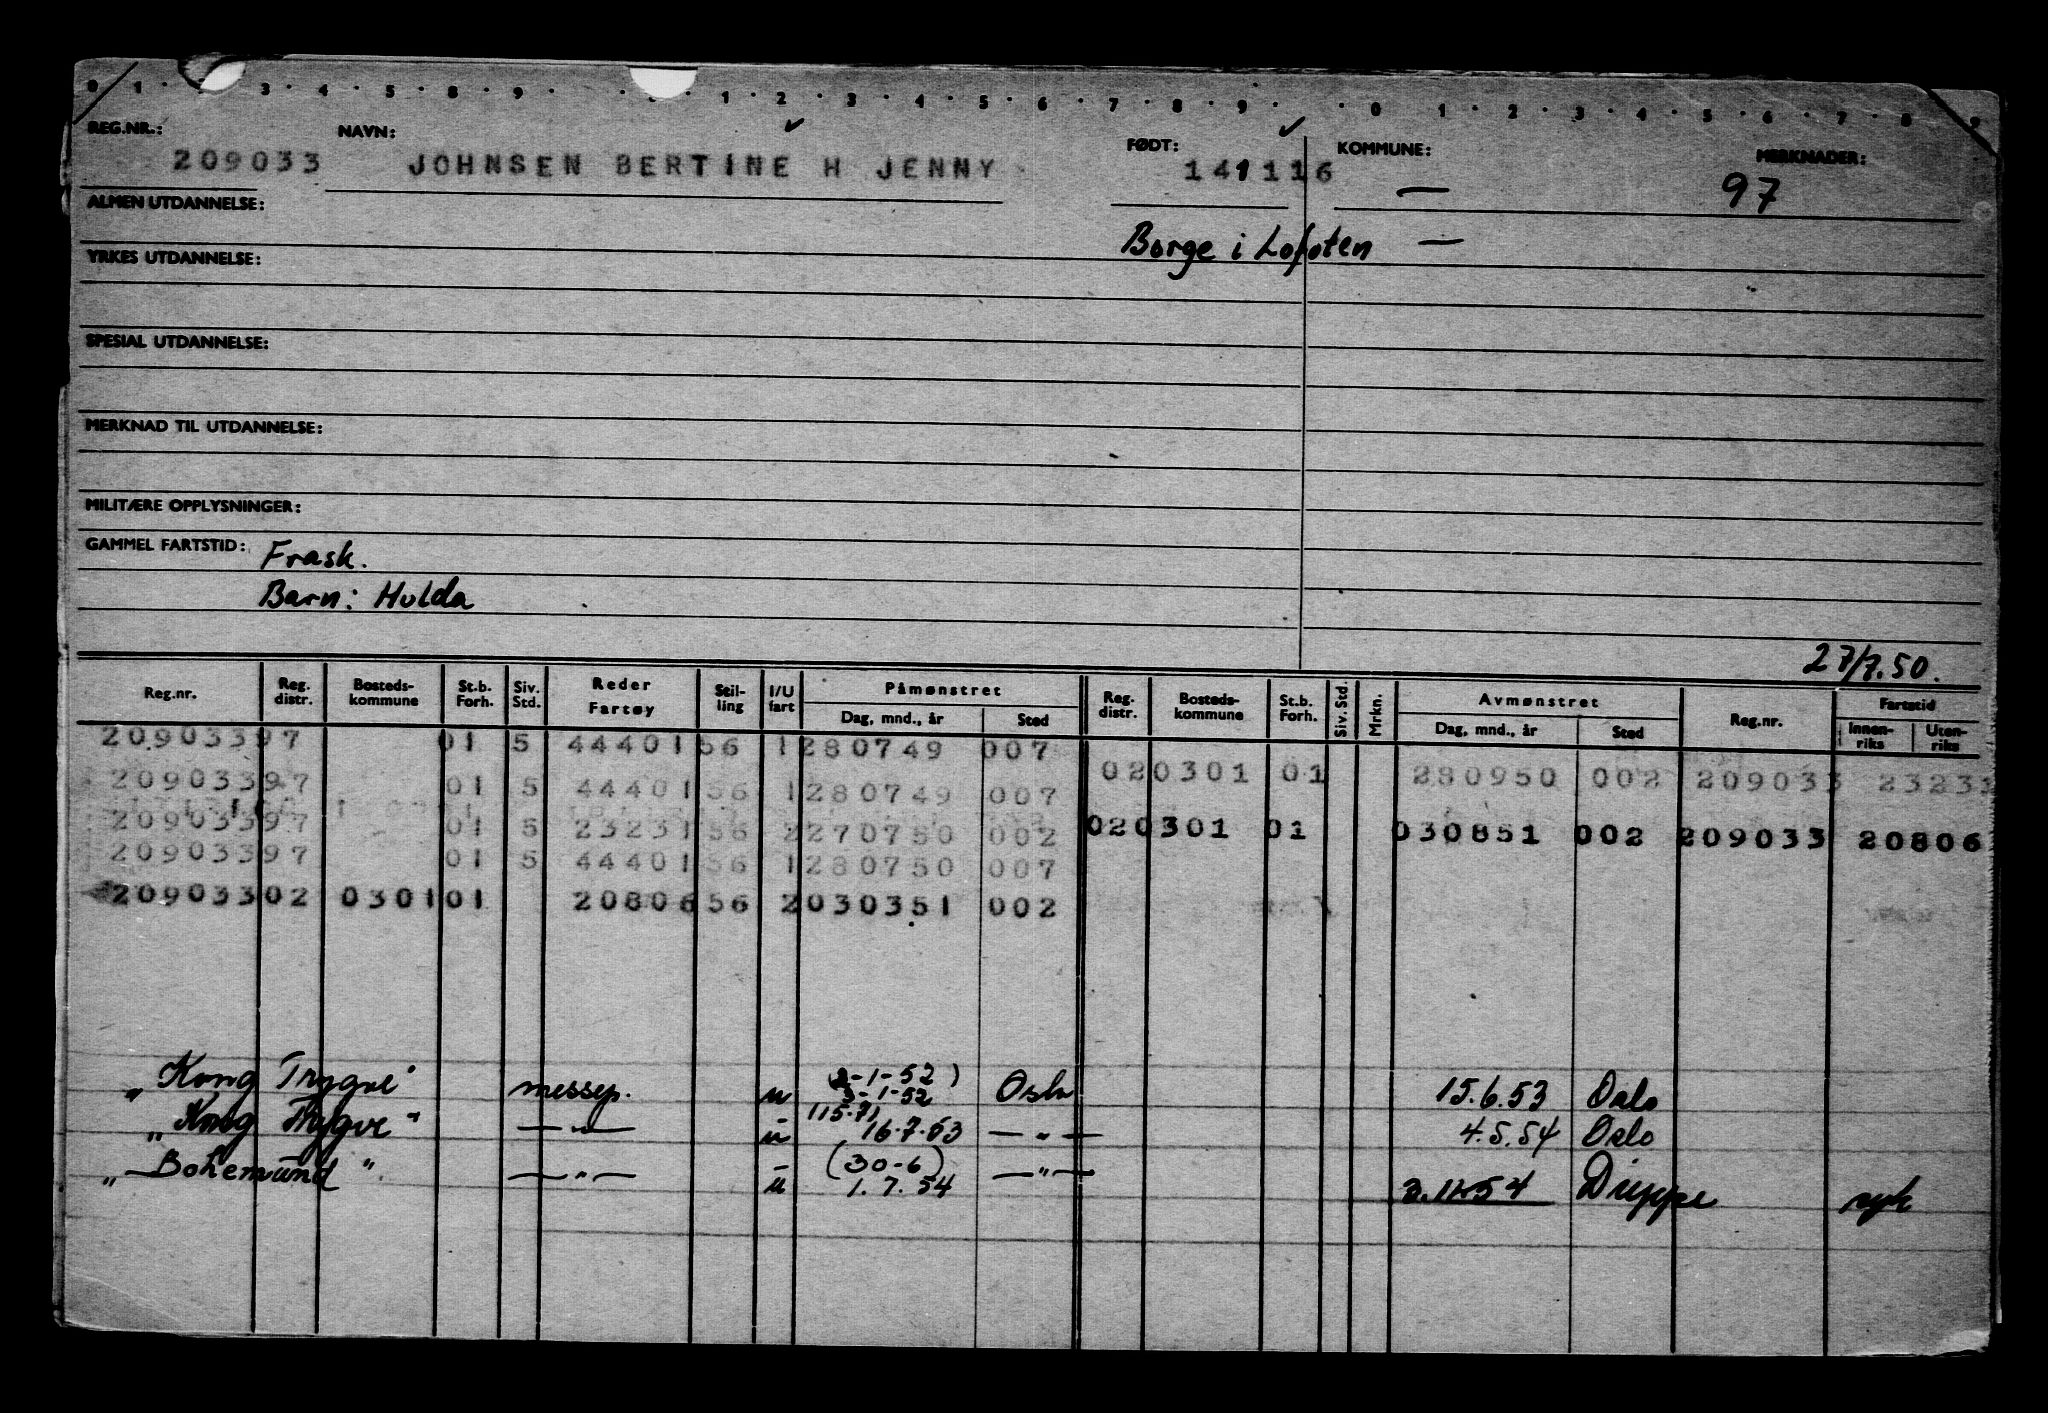 0 1 · 3 · 4 · 5 · 8 · 9 · · 1 · 2 · 3 · 4 · 5 · 6 · 7 · 8 · 9 · · 0 · 1 · 2 · 3 · 4 · 5 · 6 · 7 · 8 · 9
REG.NR.: NAVN: FØDT: KOMMUNE: MERKNADER:
209033 JOHNSEN BERTINE H JENNY 141116 — 97
ALMEN UTDANNELSE:
Borge i Lofoten —
YRKES UTDANNELSE:
SPESIAL UTDANNELSE:
MERKNAD TIL UTDANNELSE:
MILITÆRE OPPLYSNINGER:
GAMMEL FARTSTID: Frask.
Barn: Hulda
27/7.50.
Reg.nr. Reg. distr. Bosteds-kommune St.b. Forh. Siv. Std. Reder Fartøy Stil-ling I/U fart Påmønstret Dag, mnd., år Sted Reg. distr. Bosteds-kommune St.b. Forh. Siv. Std. Mrkn. Avmønstret Dag, mnd., år Sted Reg.nr. Fartstid Innen-riks Uten-riks
209033 97 01 5 44401 56 1 280749 007
209033 97 01 5 44401 56 1 280749 007 020301 01 280950 002 209033 23231
209033 97 01 5 23231 56 2 270750 002 020301 01 030851 002 209033 20806
209033 97 01 5 44401 56 1 280750 007
209033 02 0301 01 20806 56 2 030351 002
„Kong Trygve" messep. u (2-1-52) 3-1-52 Oslo 15.6.53 Oslo
„Kong Trygve" — „ — u (15.7) 16.7.53 — „ — 4.5.54 Oslo
„Bohemund" — „ — u (30-6) 1.7.54 — „ — 2.11.54 Dieppe syk